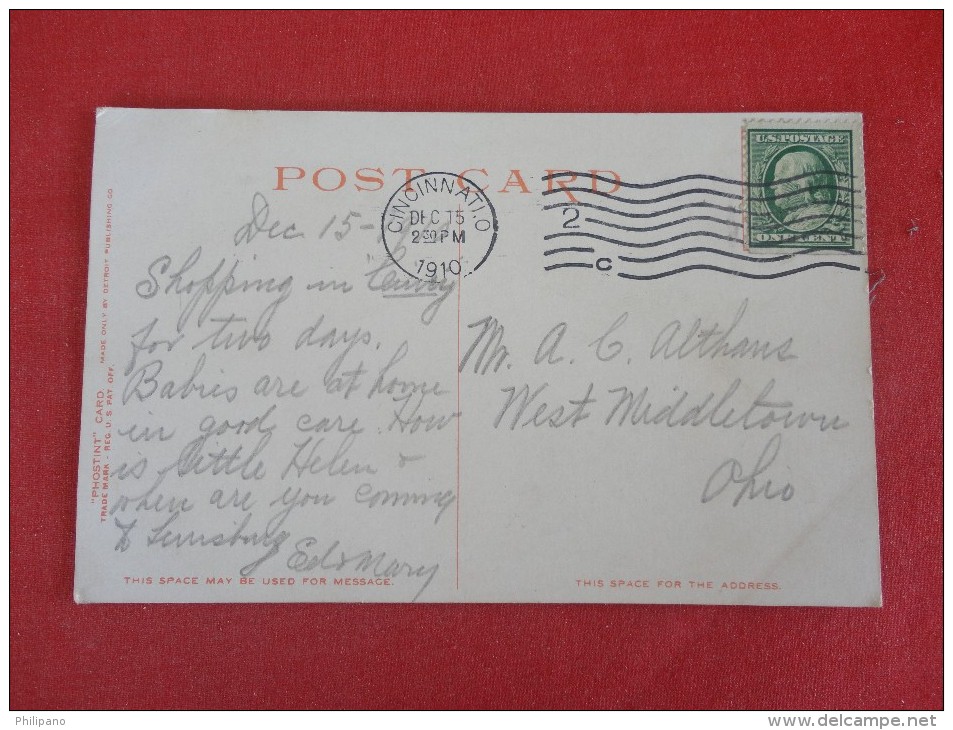 POST CARD
CINCINNATI.O
DEC 15
2 30 PM
1910
2
C
U.S. POSTAGE
ONE CENT
Dec. 15-
Shopping in Cincy
for two days.
Babies are at home
in good care. How
is little Helen &
when are you coming
to
Ed & Mary
THIS SPACE MAY BE USED FOR MESSAGE.
Mr. A. C. Althaus
West Middletown
Ohio
THIS SPACE FOR THE ADDRESS.
"PHOSTINT" CARD, MADE ONLY BY DETROIT PUBLISHING CO.
TRADE MARK - REG. U. S. PAT. OFF.
Philipano
www.delcampe.net